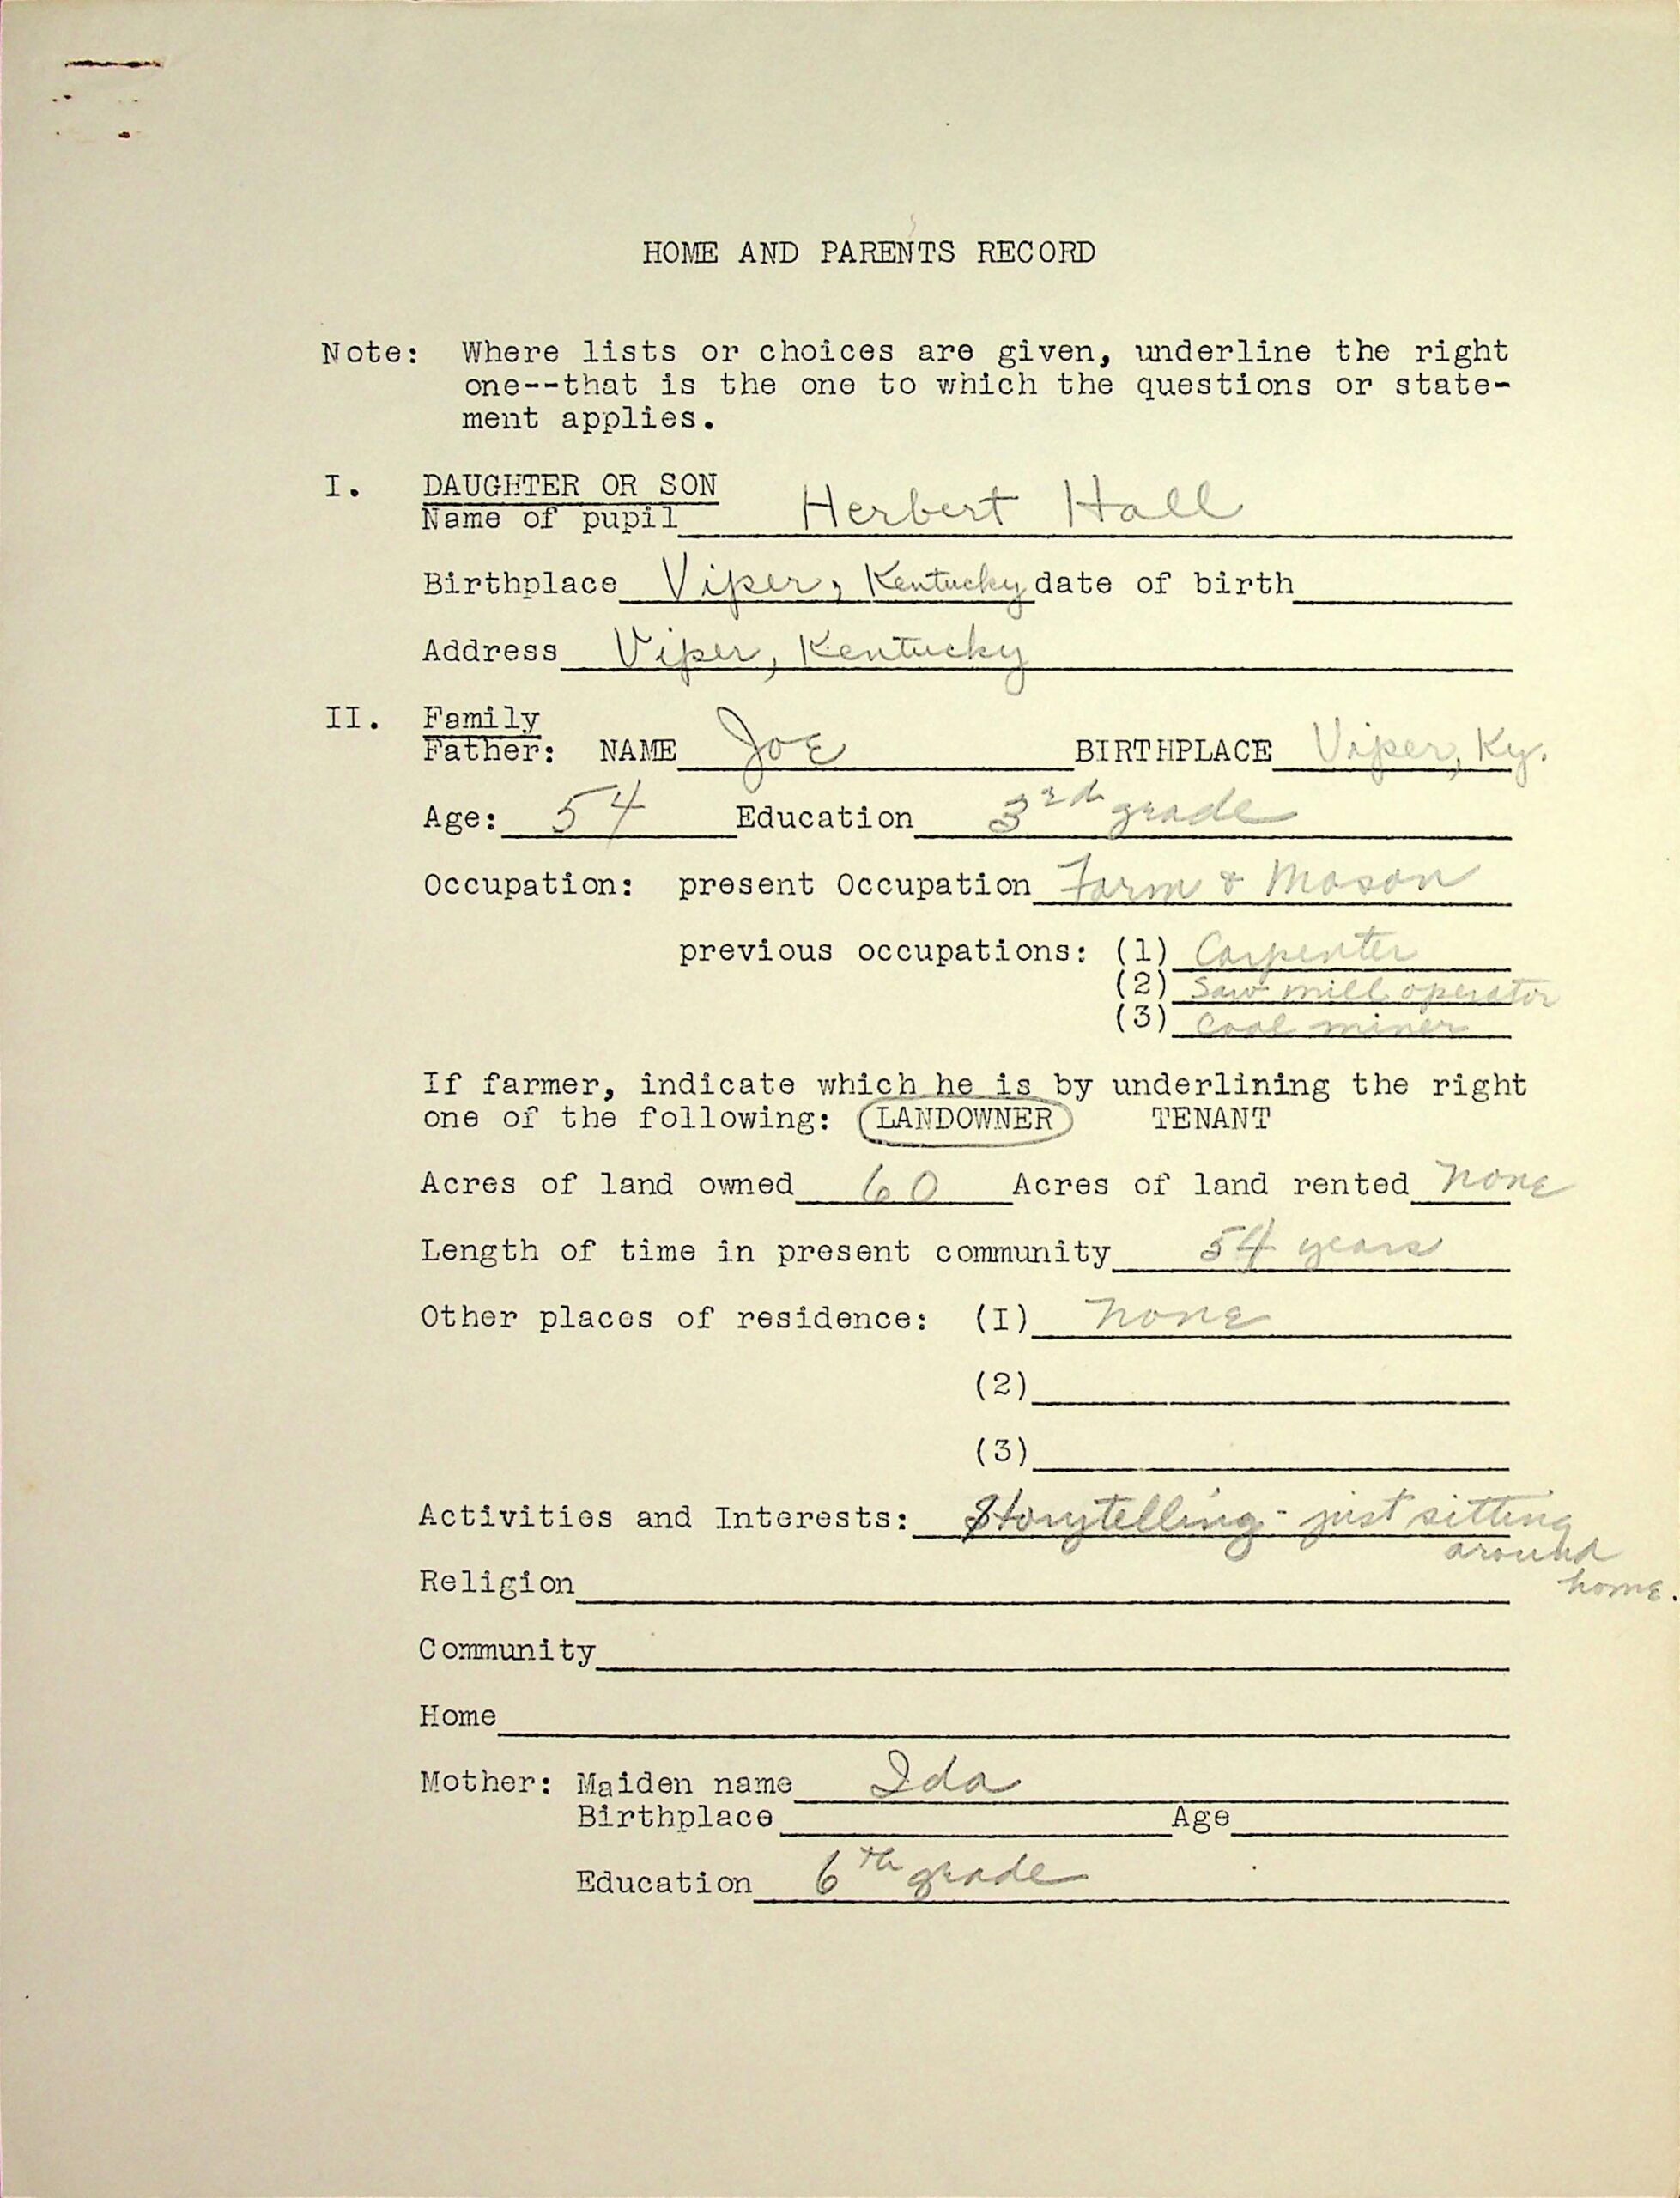 HOME AND PARENTS RECORD
Note: Where lists or choices are given, underline the right
one--that is the one to which the questions or state-
ment applies.
I. DAUGHTER OR SON
Name of pupil Herbert Hall
Birthplace Viper, Kentucky date of birth
Address Viper, Kentucky
II. Family
Father: NAME Joe BIRTHPLACE Viper, Ky.
Age: 54 Education 3rd grade
Occupation: present Occupation Farm & Mason
previous occupations: (1) Carpenter
(2) Saw mill operator
(3) Coal miner
If farmer, indicate which he is by underlining the right
one of the following: LANDOWNER TENANT
Acres of land owned 60 Acres of land rented none
Length of time in present community 54 years
Other places of residence: (I) none
(2)
(3)
Activities and Interests: Storytelling - just sitting
around
home.
Religion
Community
Home
Mother: Maiden name Ida
Birthplace Age
Education 6th grade